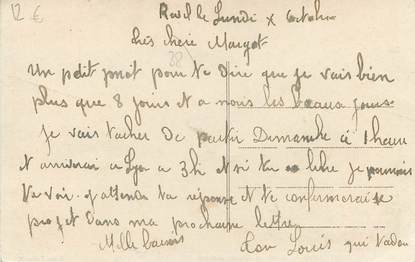 12 €
Lundi x Octobre
Très chère Margot
88
Un petit mot pour te dire que je vais bien
plus que 8 jours et a nous les beaux jours
Je vais tacher de partir Dimanche à 1 heure
et arriverai a Lyon a 3h et si tu libre je pourrais
te voir. J'attends ta réponse et te confirmerai le
projet dans ma prochaine lettre
Mille baisers
Ton Louis qui t'adore